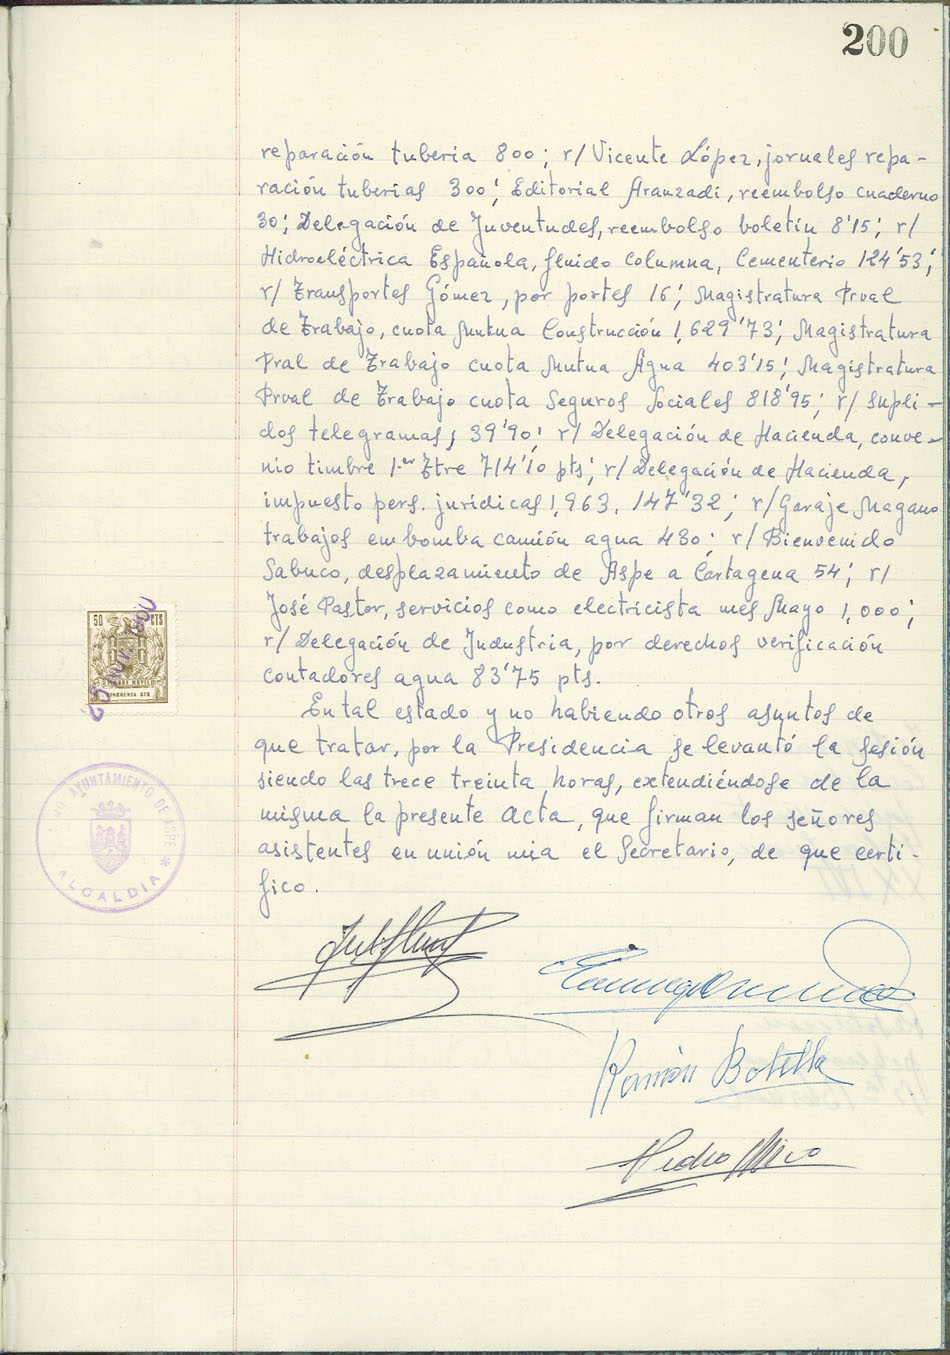 200
reparación tuberia 800; r/ Vicente López, jornales repa-
ración tuberias 300; Editorial Aranzadi, reembolso cuaderno
30; Delegación de Juventudes, reembolso boletín 8'15; r/
Hidroeléctrica Española, fluido Columna, Cementerio 124'53;
r/ Transportes Gómez, por portes 16; Magistratura Prval
de Trabajo, cuota Mutua Construcción 1,629'73; Magistratura
Pral de Trabajo cuota Mutua Agua 403'15; Magistratura
Prval de Trabajo cuota Seguros Sociales 818'95; r/ supli-
dos telegramas, 39'90; r/ Delegación de Hacienda, conve-
nio timbre 1er Ttre 714'10 pts; r/ Delegación de Hacienda,
impuesto pers. jurídicas 1,963, 147'32; r/ Garaje Magano
trabajos en bomba camión agua 430; r/ Bienvenido
Sabuco, desplazamiento de Aspe a Cartagena 54; r/
José Pastor, servicios como electricista mes Mayo 1,000;
r/ Delegación de Industria, por derechos verificación
contadores agua 83'75 pts.
En tal estado y no habiendo otros asuntos de
que tratar, por la Presidencia se levantó la sesión
siendo las trece treinta horas, extendiéndose de la
misma la presente acta, que firman los señores
asistentes en unión mia el Secretario, de que certi-
fico.
50 CTS
AYUNTAMIENTO DE ASPE
ALCALDIA
Ramón Botella
Pedro Mico